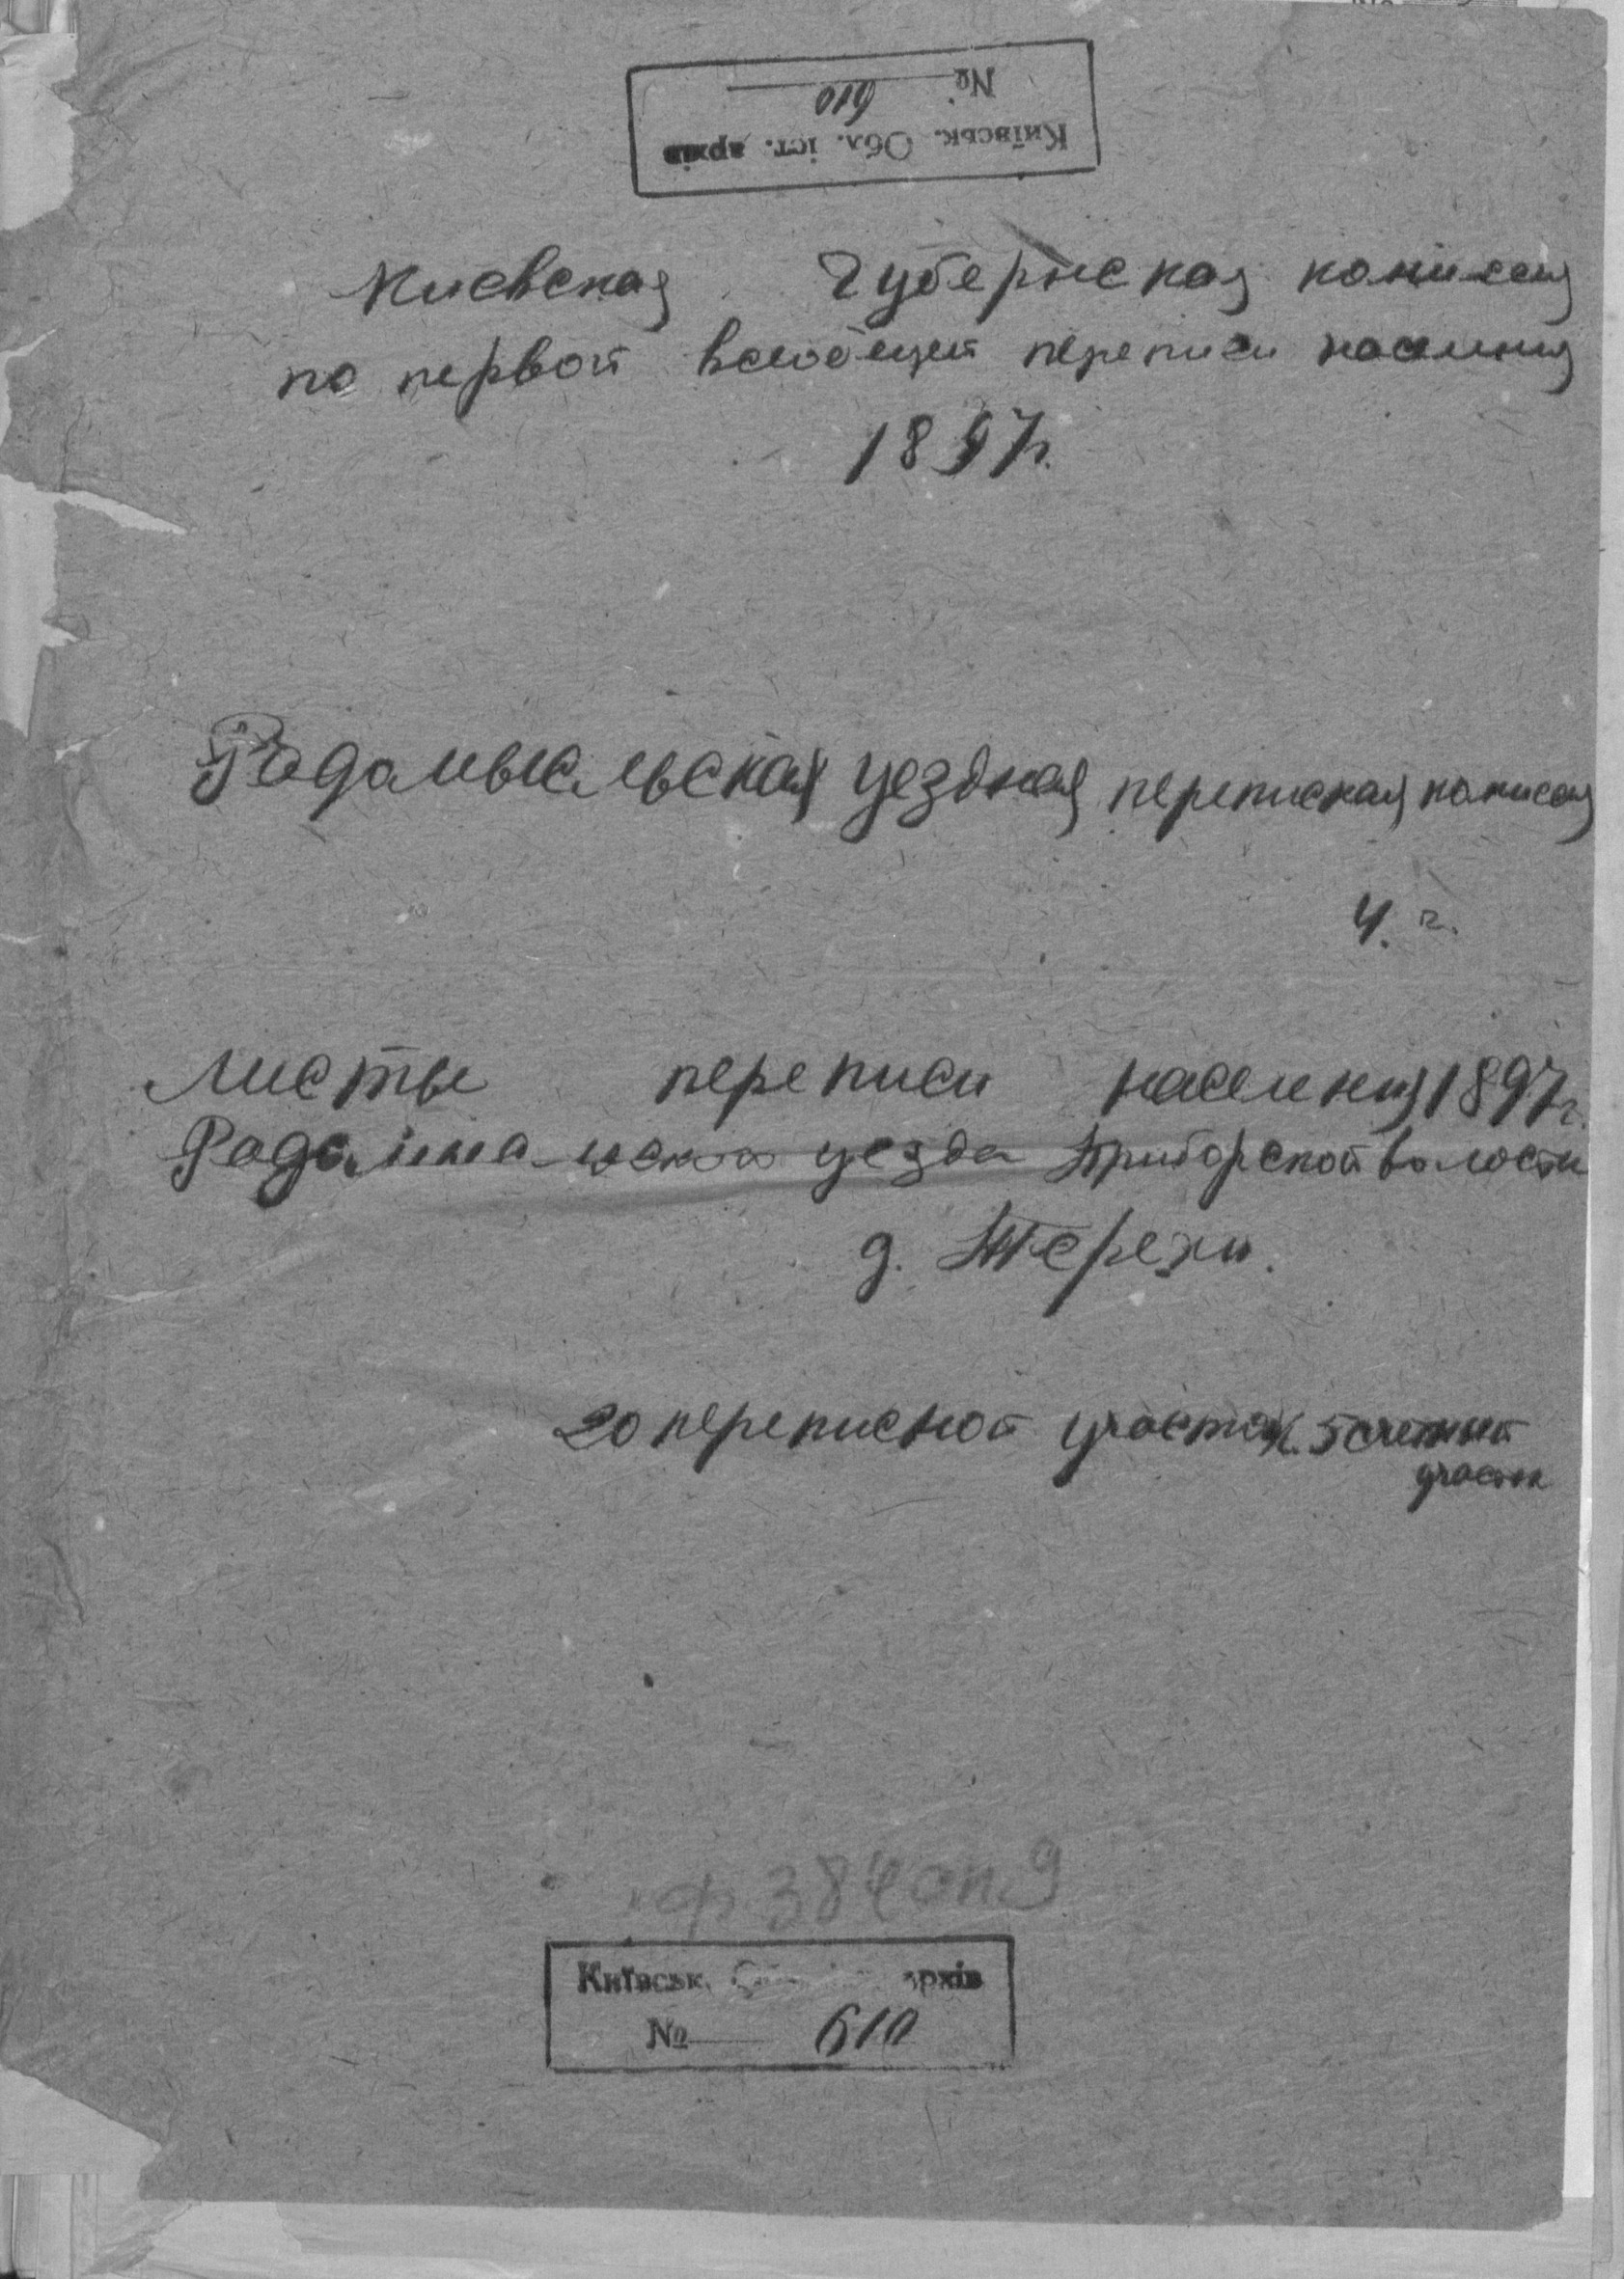 Київськ. Обл. іст. архів
№ 610
Киевская Губернская комисия
по первой всеобщей переписи населения
1897г.
Радомысльская уездная переписная комисия
Ч. г.
Листы переписи населения 1897г.
уезда Приборской волости
д. Терехи.
20 переписной участок. 5 счетный
участок
ф. 384 оп. 9
Київськ. архів
№ 610